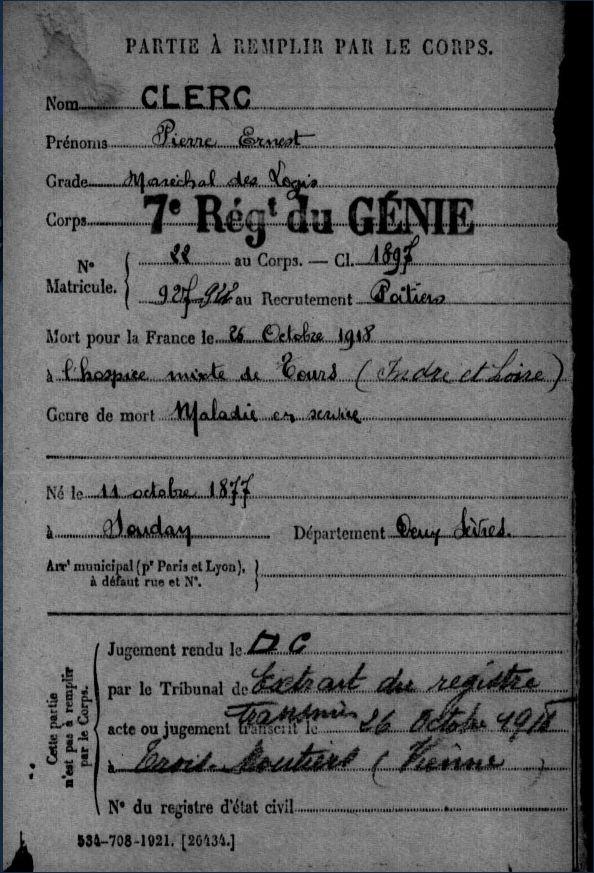 PARTIE À REMPLIR PAR LE CORPS.
Nom CLERC
Prénoms Pierre Ernest
Grade Maréchal des Logis
Corps 7e Régt du GÉNIE
N° Matricule. 22 au Corps. — Cl. 1897
927-928 au Recrutement Poitiers
Mort pour la France le 26 Octobre 1918
à l'hospice mixte de Tours (Indre et Loire)
Genre de mort Maladie en service
Né le 11 octobre 1877
à Soudan Département Deux Sèvres.
Arrt municipal (pr Paris et Lyon),
à défaut rue et N°.
Cette partie n'est pas à remplir par le Corps.
Jugement rendu le D C
par le Tribunal de Extrait du registre
acte ou jugement transcrit le transmis 26 Octobre 1918
à Trois-Moutiers (Vienne)
N° du registre d'état civil
534-708-1921. [26434.]